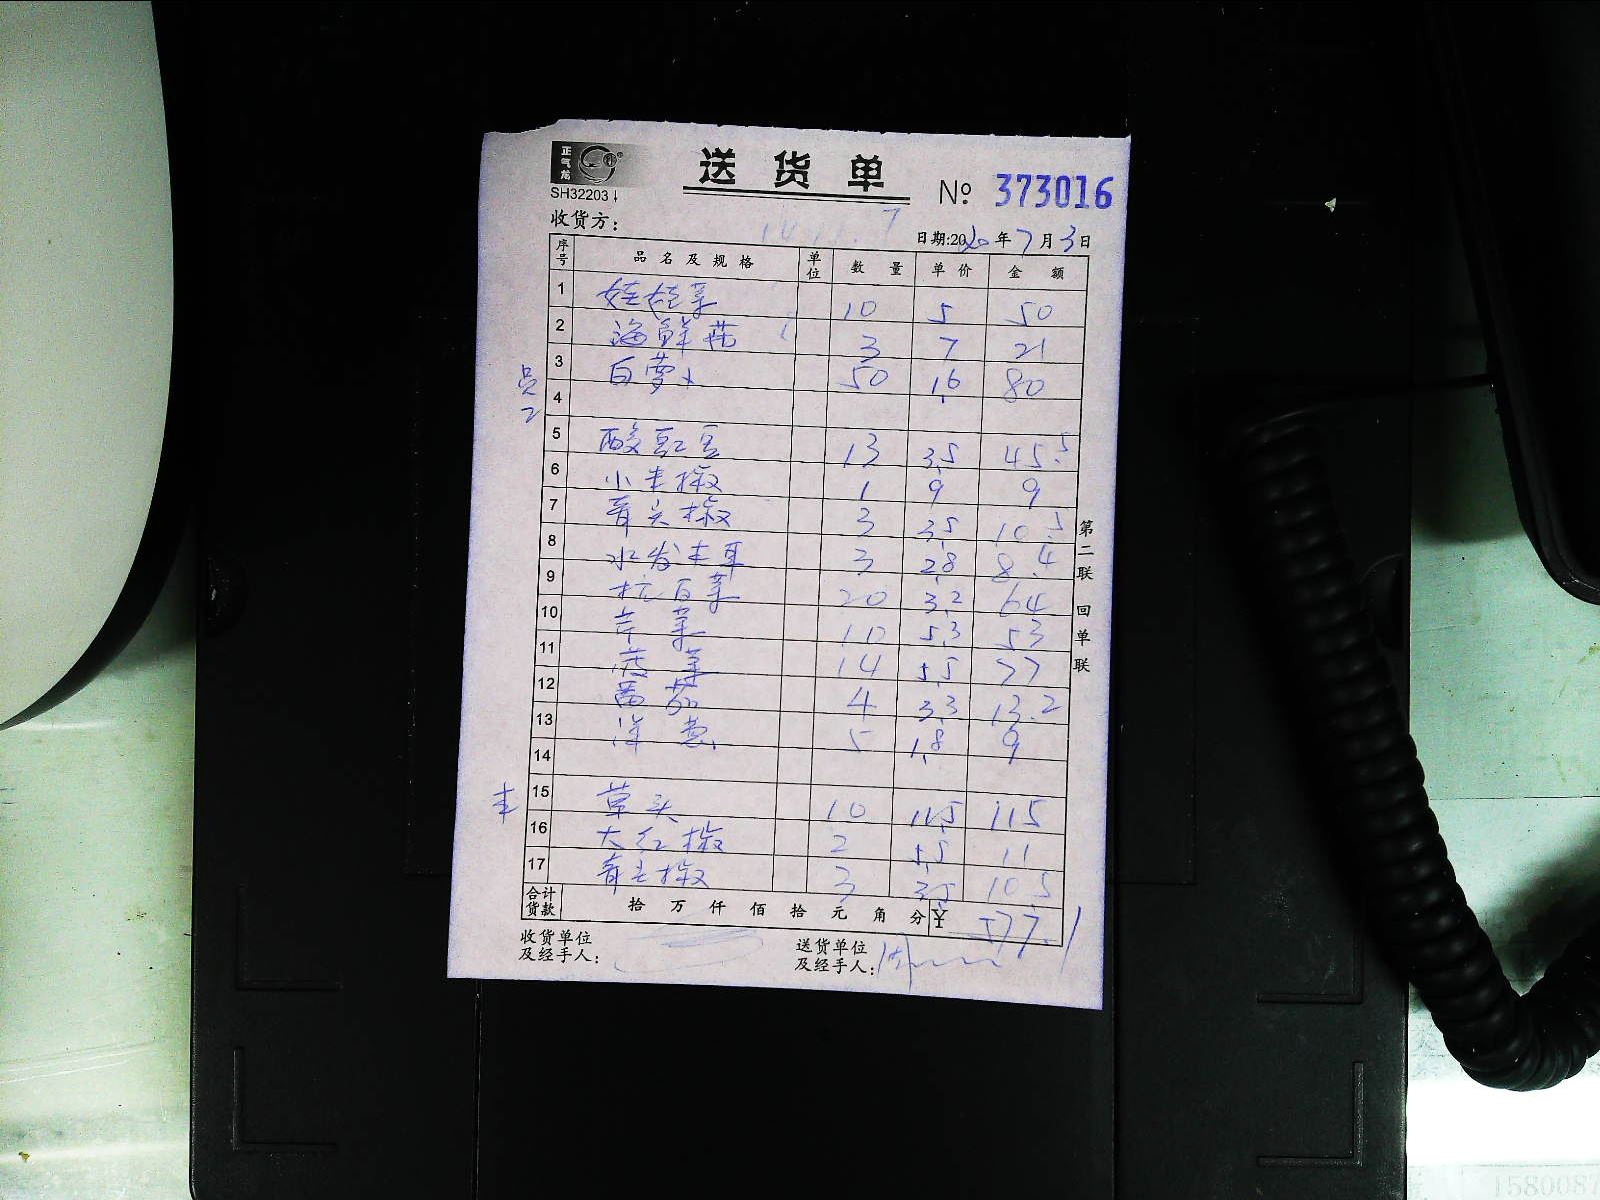 正气龙
SH32203↓
送货单
№ 373016
收货方：
日期:2020年7月3日
序号 品名及规格 单位 数量 单价 金额
1 娃娃菜 10 5 50
2 海鲜菇 3 7 21
3 白萝卜 50 1.6 80
员工
4
5 酸豇豆 13 3.5 45.5
6 小米椒 1 9 9
7 青尖椒 3 3.5 10.5
8 水发木耳 3 2.8 8.4
9 杭白菜 20 3.2 64
10 芹菜 10 5.3 53
11 菠菜 14 5.5 77
12 番茄 4 3.3 13.2
13 洋葱 5 1.8 9
14
15 草头 10 11.5 115
16 大红椒 2 5.5 11
17 青尖椒 3 3.5 10.5
合计货款 拾万仟佰拾元角分 ¥ 577.1
收货单位及经手人：
送货单位及经手人：
第二联 回单联
1580087